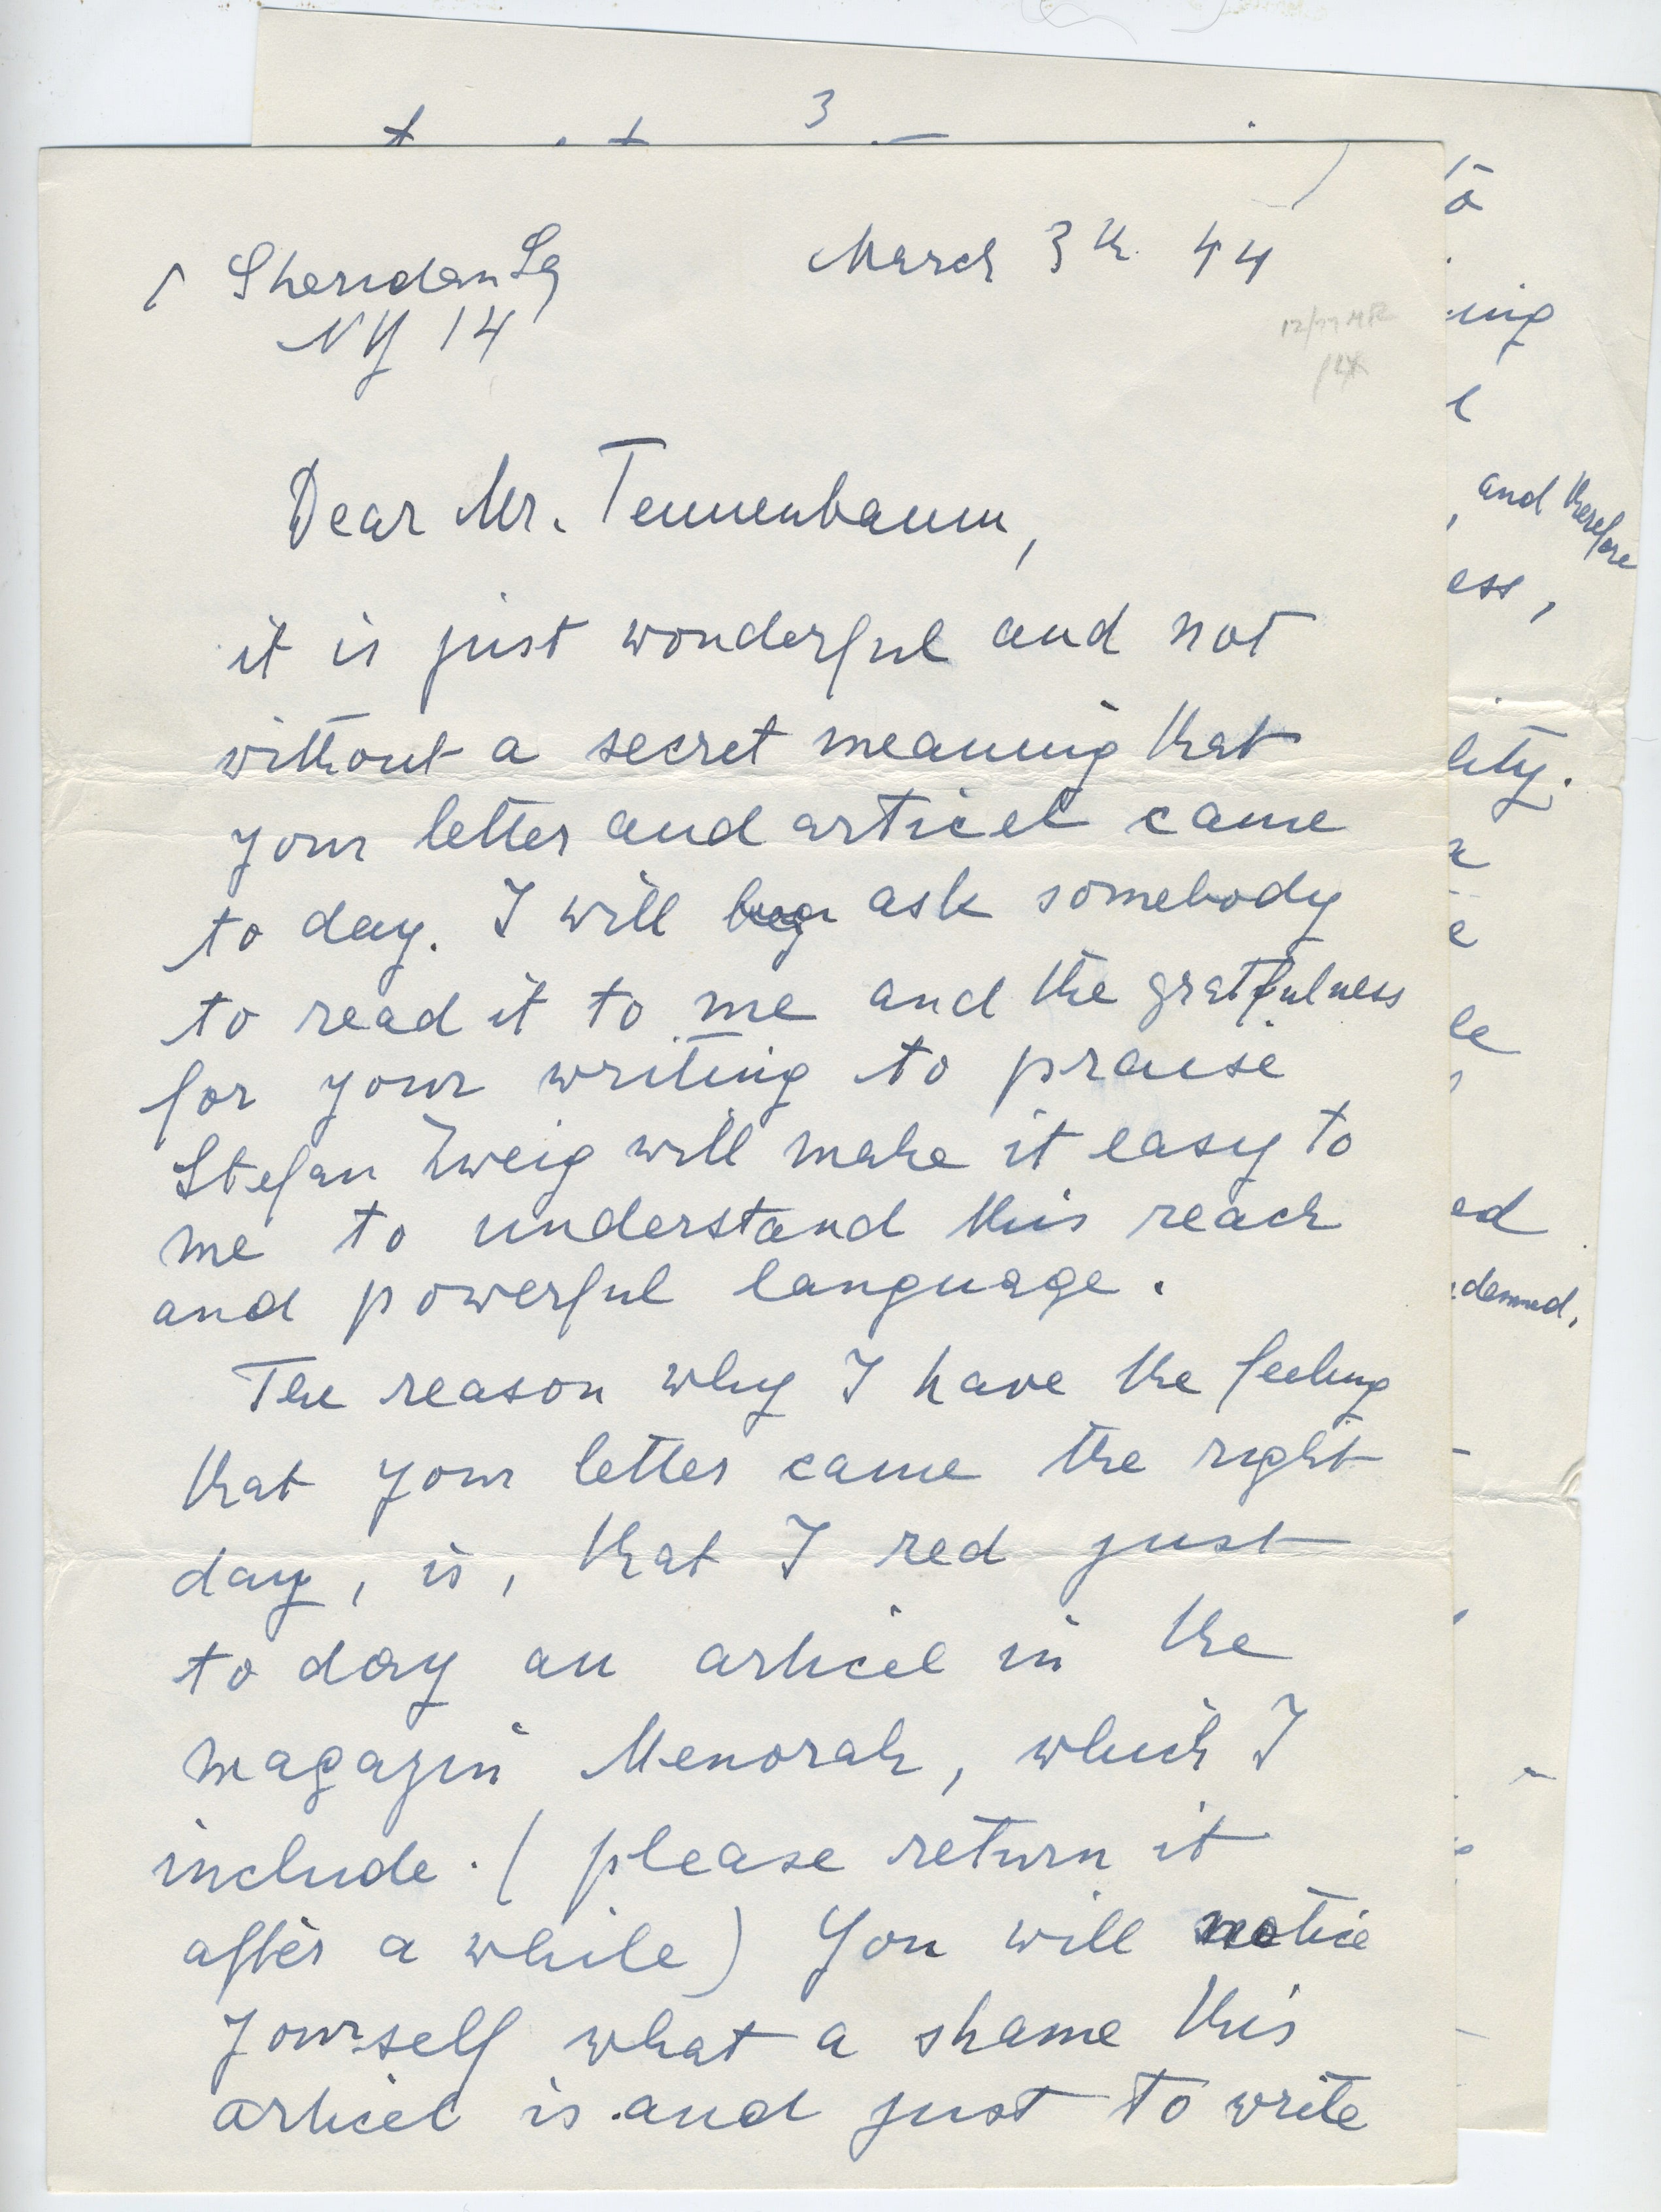 3
1 Sheridan Sq March 3th. 44
NY 14
Dear Mr. Tennenbaum,
it is just wonderful and not
without a secret meaning that
your letter and articel came
to day. I will ask somebody
to read it to me and the gratfulness
for your writing to praise
Stefan Zweig will make it easy to
me to understand this reach
and powerful language.
The reason why I have the feeling
that your letter came the right
day, is, that I red just
to day an articel in the
magazin Menorah, which I
include. (please return it
after a while) You will notice
yourself what a shame this
articel is and just to write
to
ing
l
, and therefore
ess,
lity.
e
le
ed
demned.